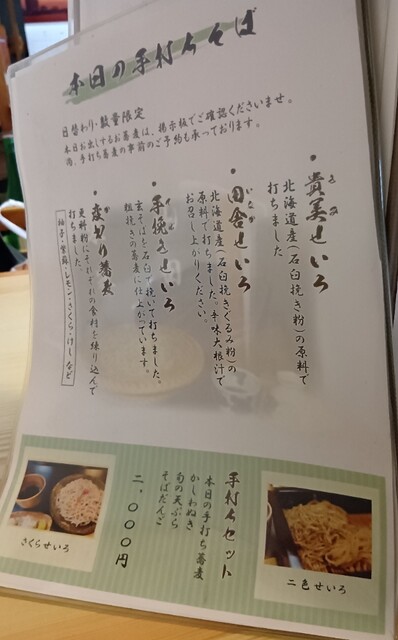 本日の手打ちそば
日替わり・数量限定
本日お出しするお蕎麦は、掲示板でご確認くださいませ。
尚、手打ち蕎麦の事前のご予約も承っております。
・貴美せいろ
きみ
北海道産(石臼挽き粉)の原料で
打ちました
・田舎せいろ
いなか
北海道産(石臼挽きぐるみ粉)の
原料で打ちました。辛味大根汁で
お召し上がりください。
・手挽きせいろ
玄そばを石臼で挽いて打ちました。
粗挽きの蕎麦に仕上がっています。
・変わり蕎麦
更科粉にそれぞれの食材を練り込んで
打ちました。
柚子・紫蘇・レモン・さくら・けしなど
手打ちセット
本日の手打ち蕎麦
かしわぬき
旬の天ぷら
そばだんご
二、〇〇〇円
二色せいろ
さくらせいろ